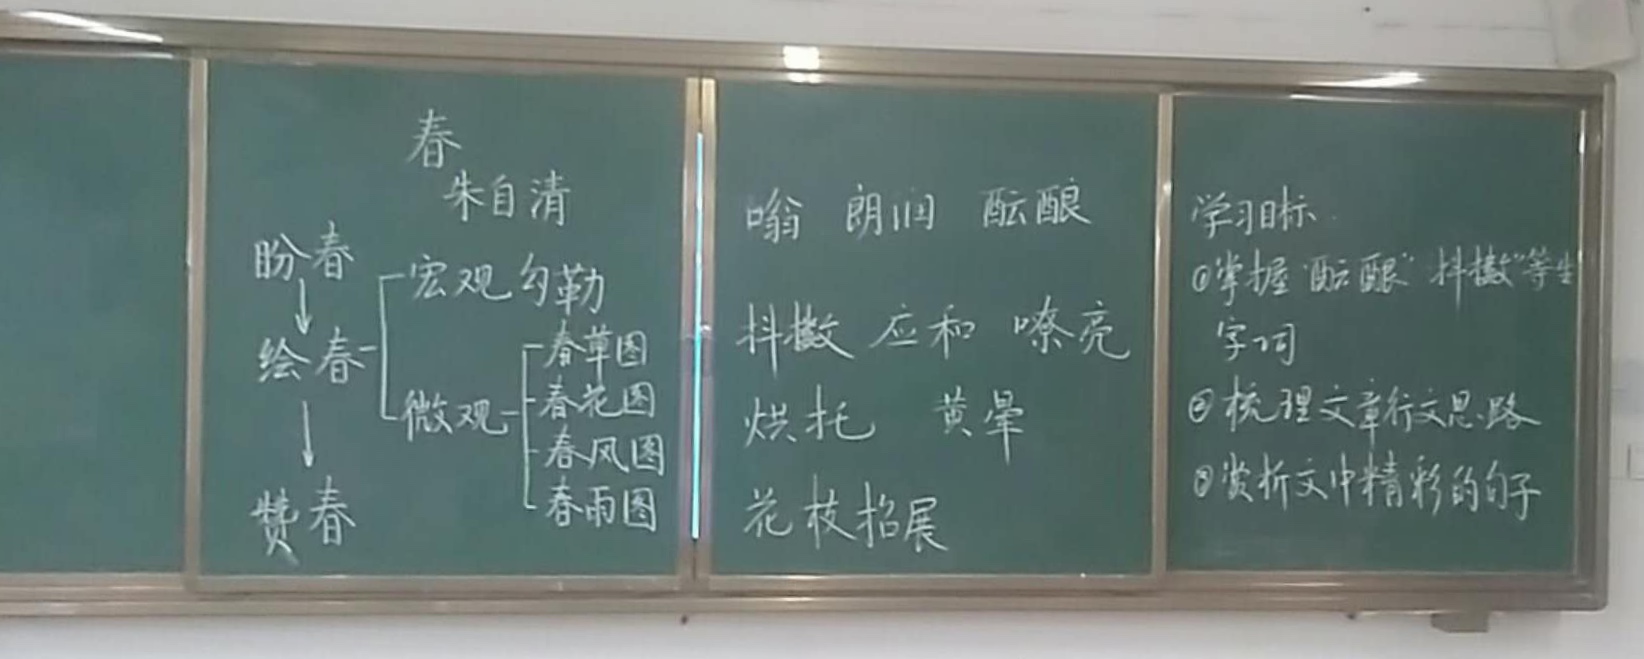 春
朱自清
盼春
宏观勾勒
绘春
微观
春草图
春花图
春风图
春雨图
赞春
嗡 朗润 酝酿
抖擞 应和 嘹亮
烘托 黄晕
花枝招展
学习目标
①掌握"酝酿""抖擞"等生
字词
②梳理文章行文思路
③赏析文中精彩的句子